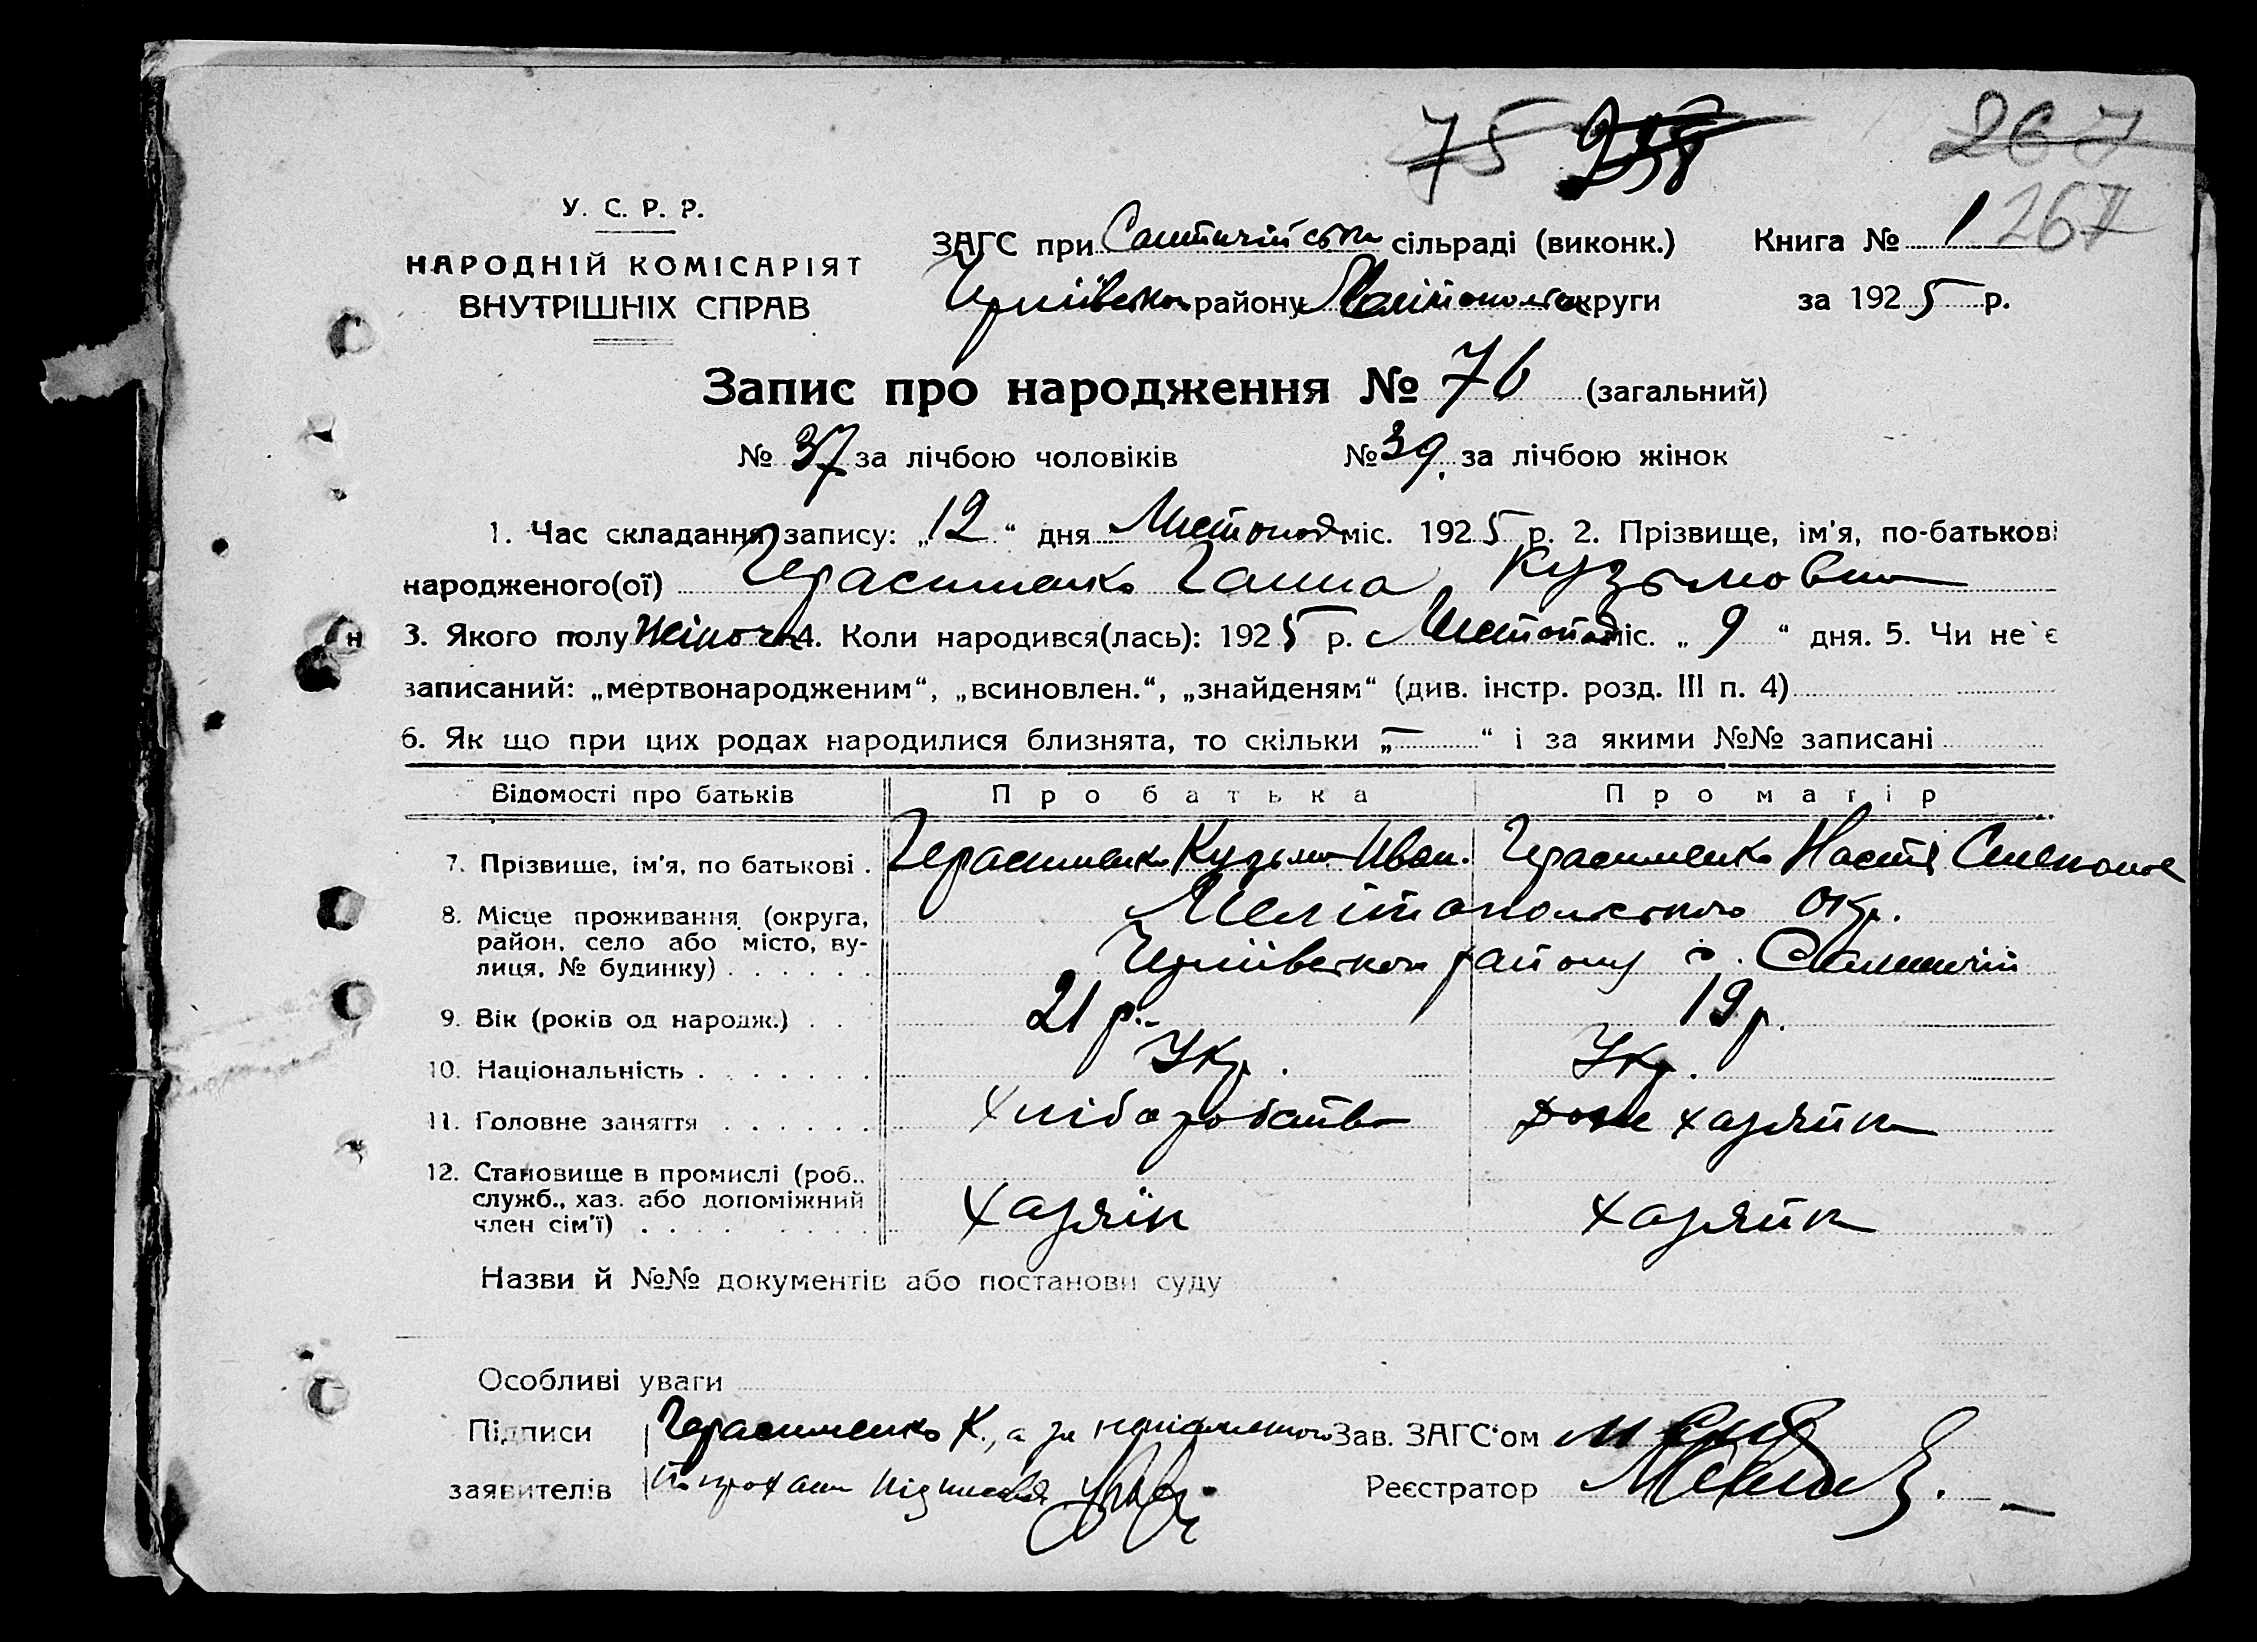 75 267
У. С. Р. Р.
НАРОДНІЙ КОМІСАРІЯТ
ВНУТРІШНІХ СПРАВ
ЗАГС при сільраді (виконк.) Книга № 1 267
району округи за 1925 р.
Запис про народження № 76 (загальний)
№ 37 за лічбою чоловіків № 39. за лічбою жінок
1. Час складання запису: „12“ дня Листопад міс. 1925 р. 2. Прізвище, ім'я, по-батькові
народженого(ої) Герасименко Ганна Кузьмовна
3. Якого полу жіноча 4. Коли народився(лась): 1925 р. Листопад міс. „9“ дня. 5. Чи не є
записаний: „мертвонародженим“, „всиновлен.“, „знайденям“ (див. інстр. розд. III п. 4)
6. Як що при цих родах народилися близнята, то скільки „—“ і за якими №№ записані
Відомості про батьків Про батька Про матір
7. Прізвище, ім'я, по батькові . Герасименко Кузьма Иван. Герасименко Настя
8. Місце проживання (округа, район, село або місто, вулиця, № будинку) Мелітопольского окр.
району с.
9. Вік (років од народж.) . . 21 р. 19 р.
10. Національність . . . . . . . Укр. Укр.
11. Головне заняття . . . . . . хліборобство дом хазяйка
12. Становище в промислі (роб.,
служб., хаз. або допоміжний
член сім'ї) . . . . . . . . хазяїн хазяйка
Назви й №№ документів або постанови суду
Особливі уваги
Підписи Герасименко К., а за Зав. ЗАГС'ом
заявителів Реєстратор